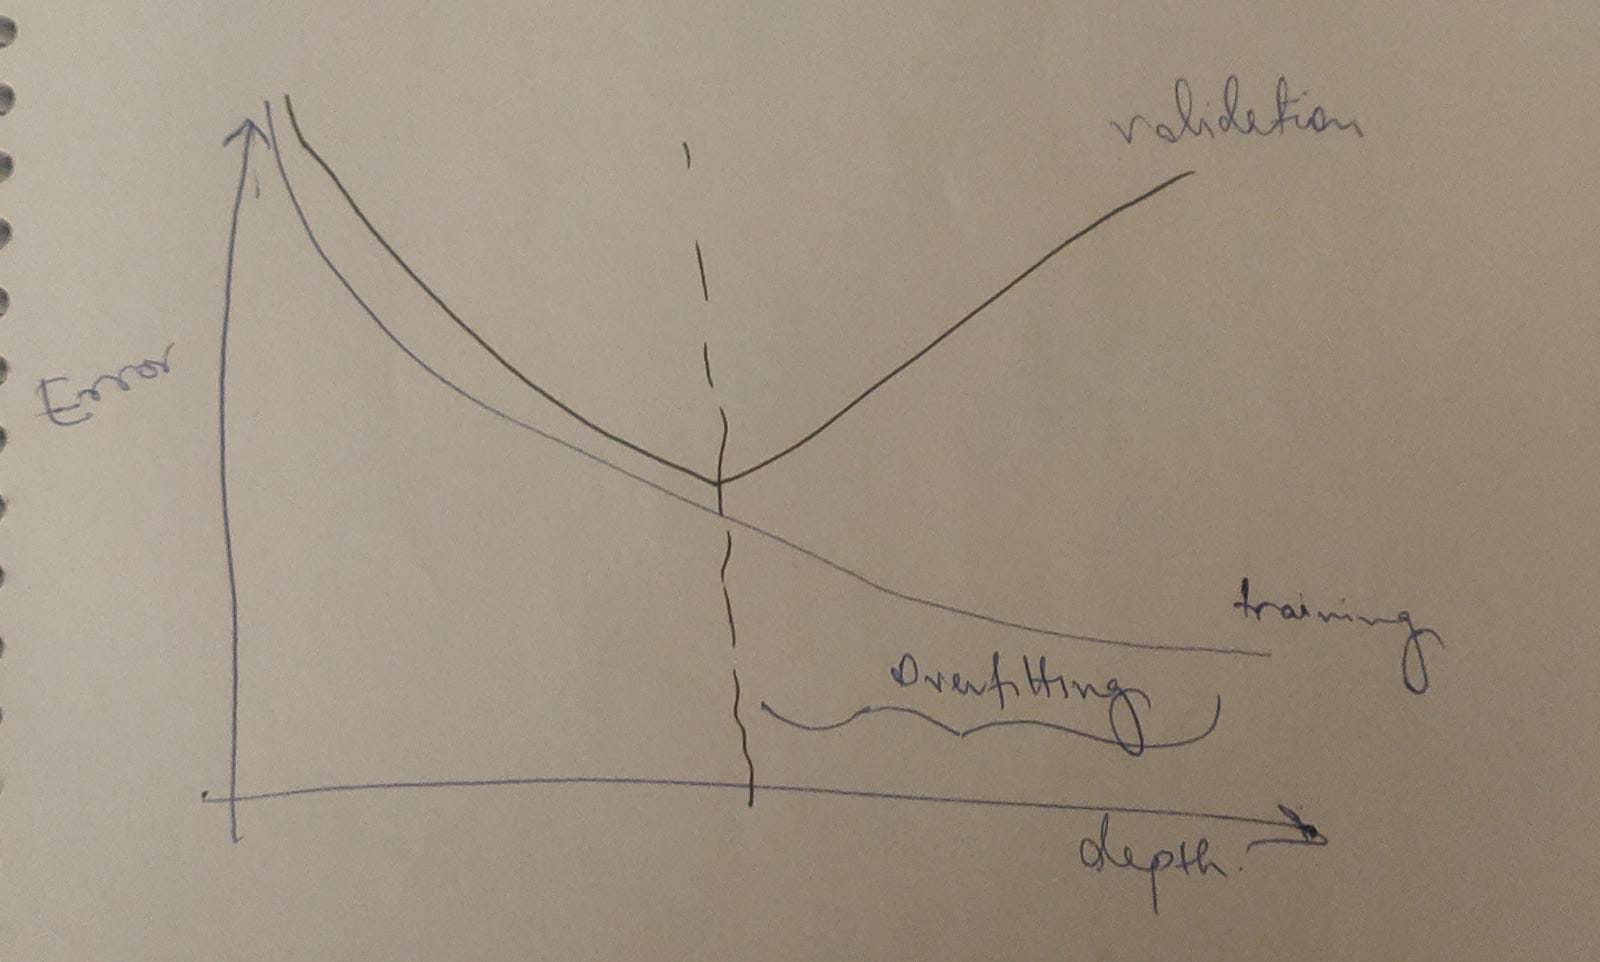 validation
Error
training
Overfitting
depth.